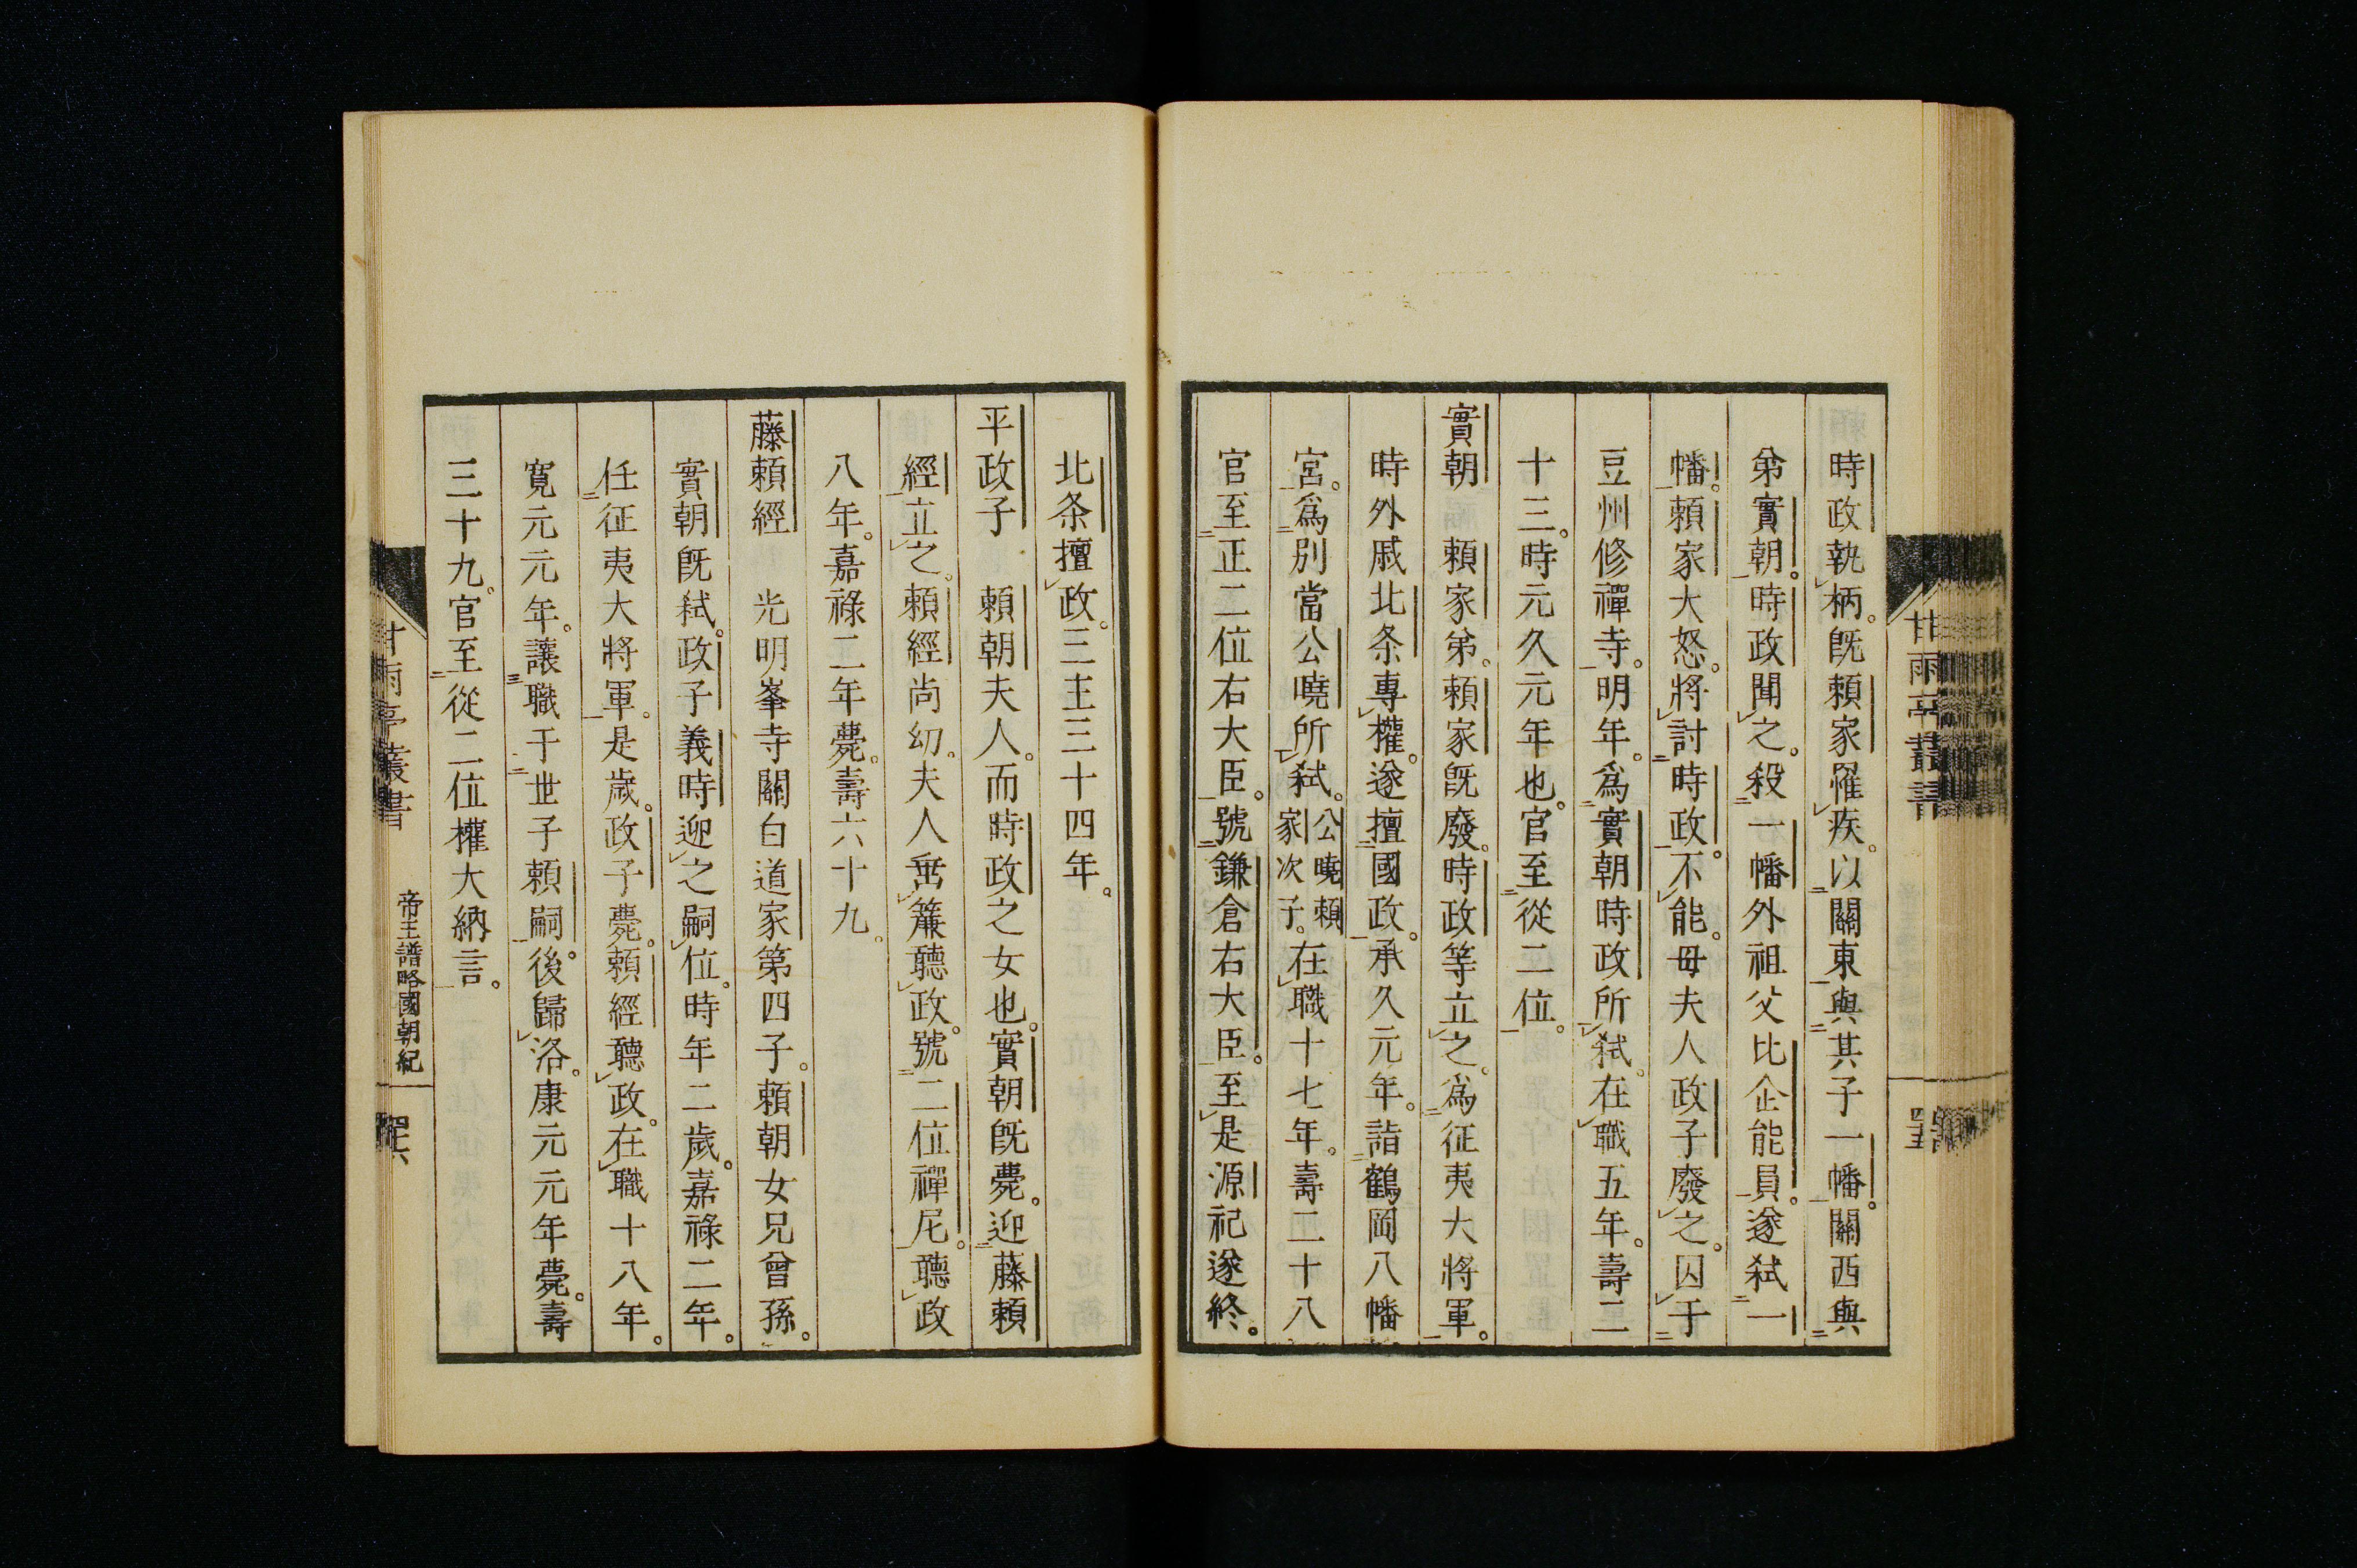 時政執柄。既頼家罹疾。以關東與其子一幡。關西與
弟實朝。時政聞之。殺一幡外祖父比企能員。遂弑一
幡。頼家大怒。將討時政。不能。母夫人政子廢之。囚于
豆州修禪寺。明年。爲實朝時政所弑。在職五年。壽二
十三。時元久元年也。官至從二位。
實朝　頼家弟。頼家既廢。時政等立之。爲征夷大將軍。
時外戚北条專權。遂擅國政。承久元年。詣鶴岡八幡
宮。爲別當公曉所弑。公曉頼家次子。在職十七年。壽二十八
官至正二位右大臣。號鎌倉右大臣。至是源祀遂終。
北条擅政。三主三十四年。
平政子　頼朝夫人。而時政之女也。實朝既薨。迎藤頼
經立之。頼經尚幼。夫人垂簾聽政。號二位禪尼。聽政
八年。嘉祿二年薨。壽六十九。
藤頼經　光明峯寺關白道家第四子。頼朝女兄曾孫。
實朝既弑。政子義時迎之嗣位。時年二歲。嘉祿二年。
任征夷大將軍。是歲。政子薨。頼經聽政。在職十八年。
寛元元年。讓職于世子頼嗣。後歸洛。康元元年薨。壽
三十九。官至從二位權大納言。
甘雨亭叢書
帝王譜略國朝紀